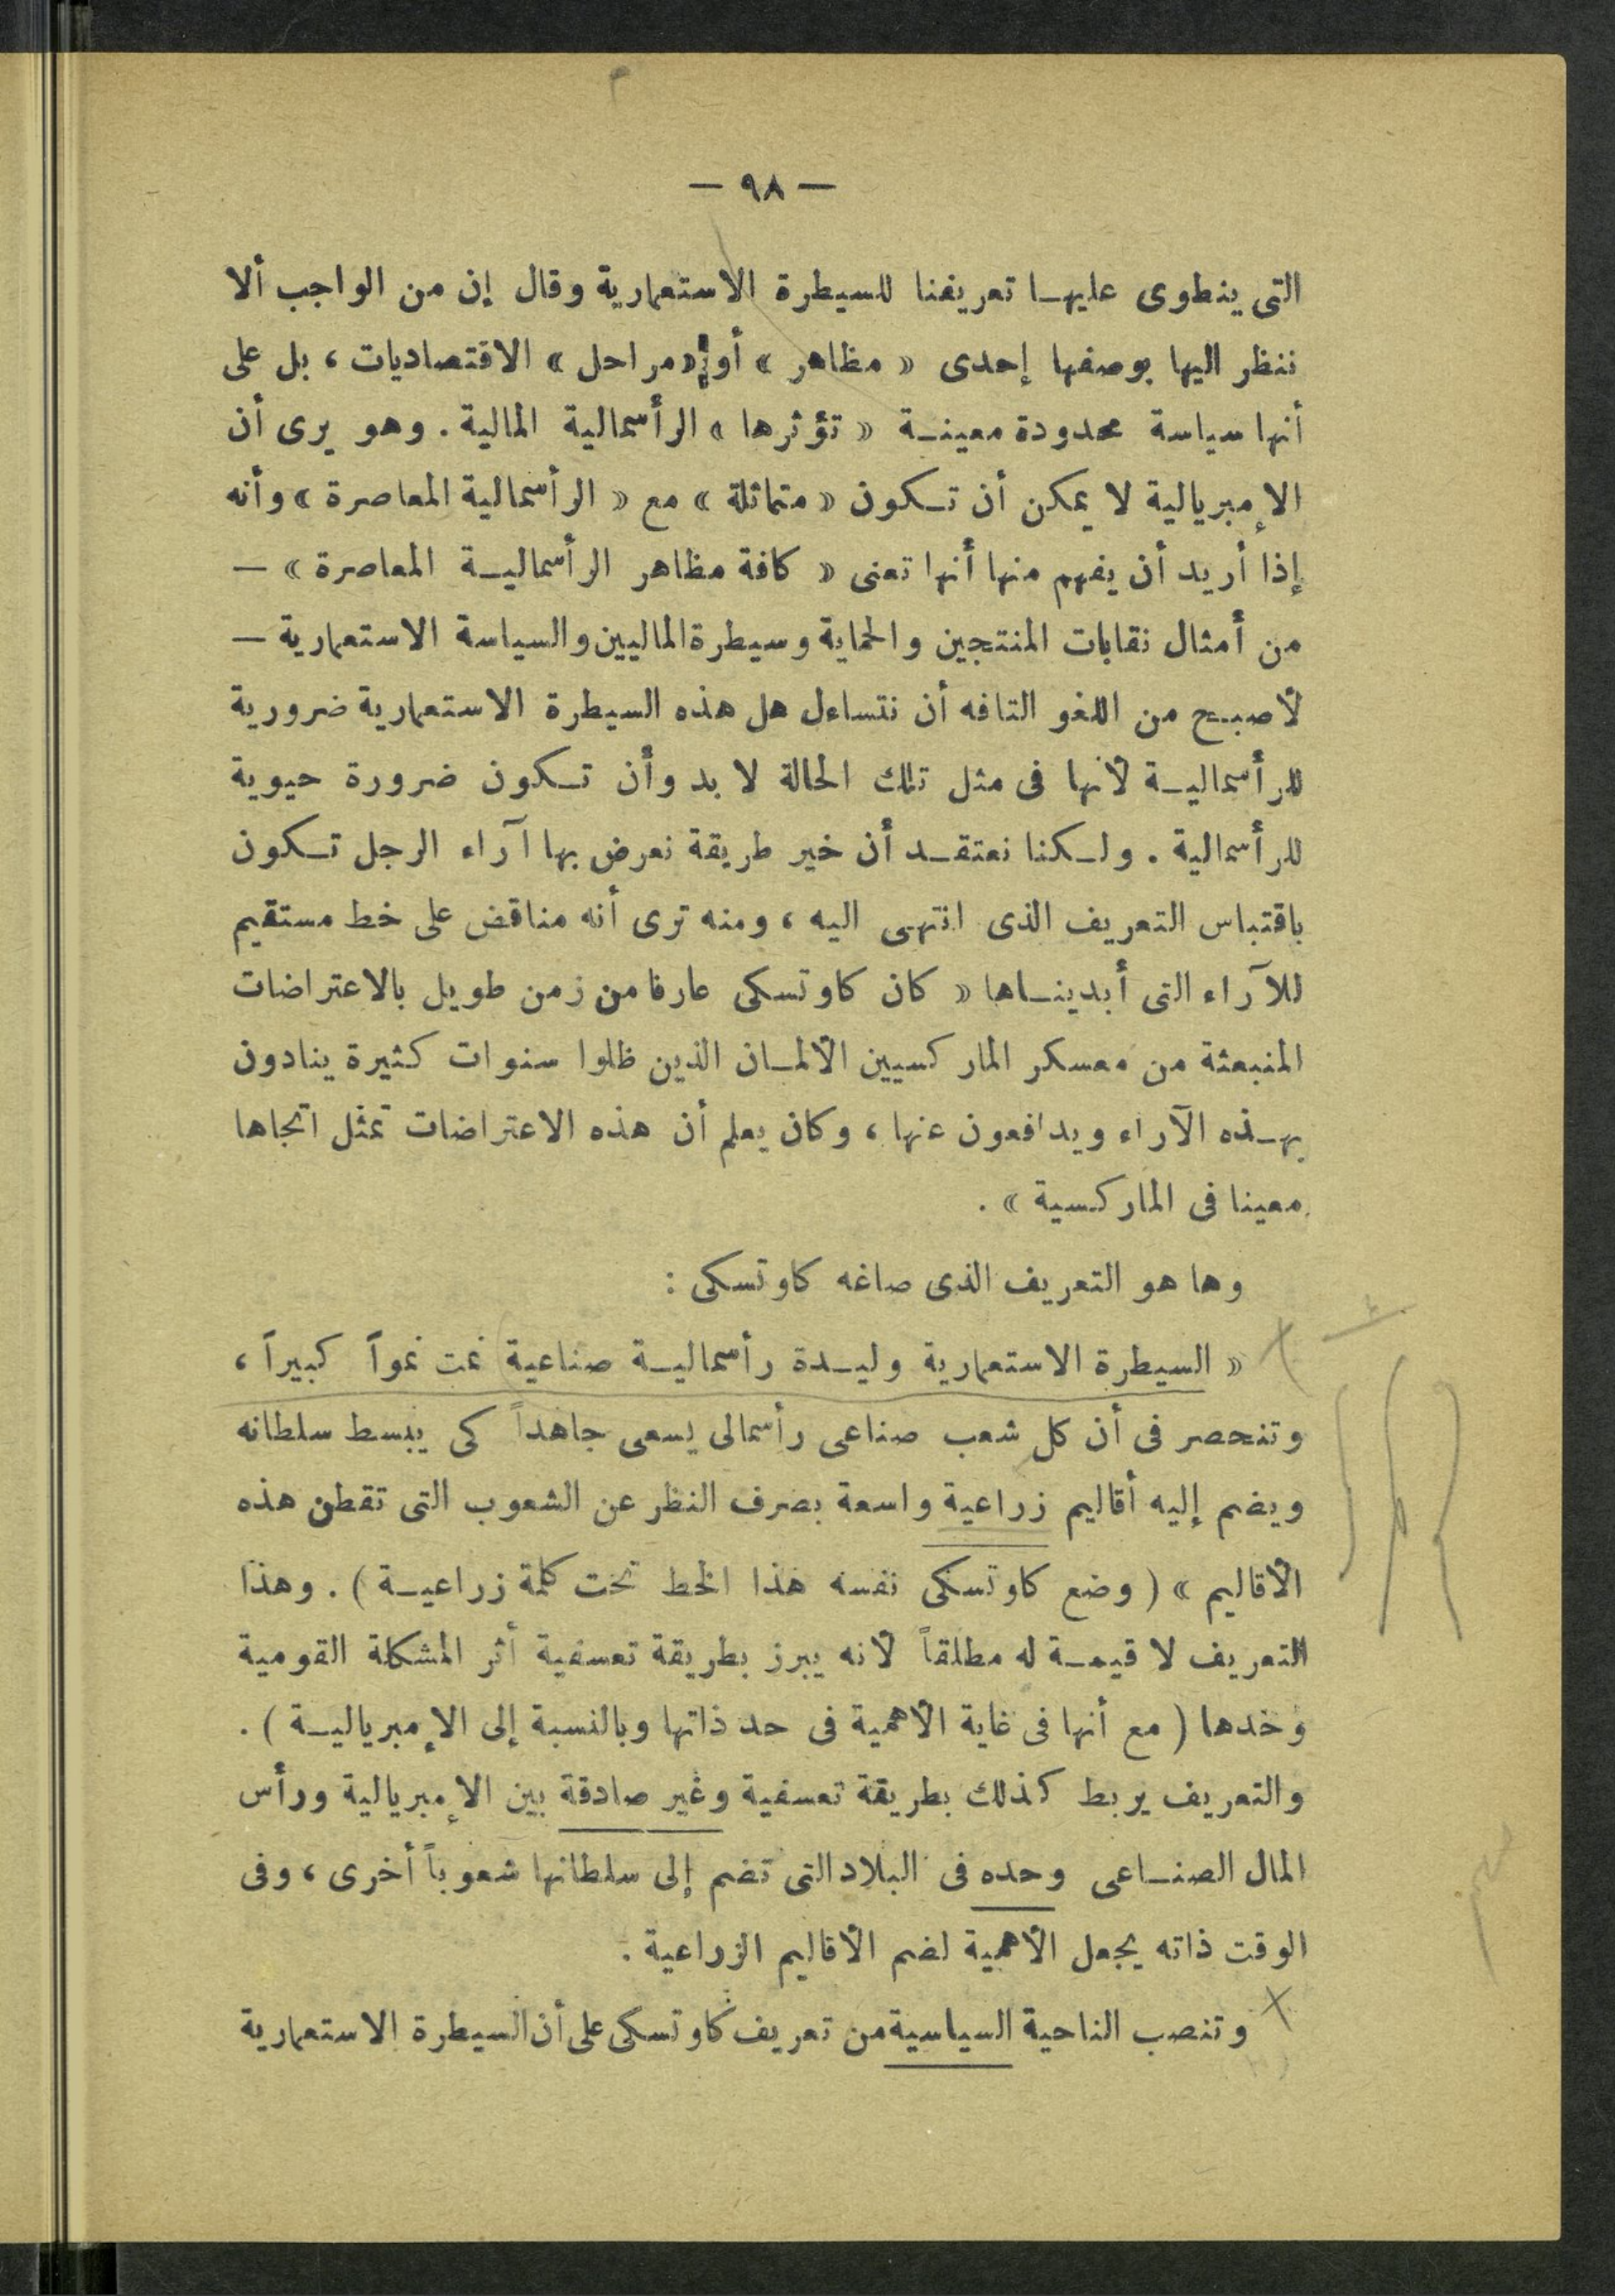 — ٩٨ —
التى ينطوى عليها تعريفنا للسيطرة الاستعمارية وقال إن من الواجب ألا
ننظر اليها بوصفها إحدى « مظاهر » أو « مراحل » الاقتصاديات ، بل على
أنها سياسة محدودة معينة « تؤثرها » الرأسمالية المالية . وهو يرى أن
الإمبريالية لا يمكن أن تكون « متماثلة » مع « الرأسمالية المعاصرة » وأنه
إذا أريد أن يفهم منها أنها تعنى « كافة مظاهر الرأسمالية المعاصرة » —
من أمثال نقابات المنتجين والحماية وسيطرة الماليين والسياسة الاستعمارية —
لأصبح من اللغو التافه أن نتساءل هل هذه السيطرة الاستعمارية ضرورية
للرأسمالية لأنها فى مثل تلك الحالة لا بد وأن تكون ضرورة حيوية
للرأسمالية . ولكنا نعتقد أن خير طريقة نعرض بها آراء الرجل تكون
باقتباس التعريف الذى انتهى اليه ، ومنه ترى أنه مناقض على خط مستقيم
للآراء التى أبديناها « كان كاوتسكى عارفا من زمن طويل بالاعتراضات
المنبعثة من معسكر الماركسيين الألمان الذين ظلوا سنوات كثيرة ينادون
بهذه الآراء ويدافعون عنها ، وكان يعلم أن هذه الاعتراضات تمثل اتجاها
معينا فى الماركسية » .
وها هو التعريف الذى صاغه كاوتسكى :
« السيطرة الاستعمارية وليدة رأسمالية صناعية نمت نمواً كبيراً ،
وتنحصر فى أن كل شعب صناعى رأسمالى يسعى جاهداً كى يبسط سلطانه
ويضم إليه أقاليم زراعية واسعة بصرف النظر عن الشعوب التى تقطن هذه
الأقاليم » ( وضع كاوتسكى نفسه هذا الخط تحت كلمة زراعية ) . وهذا
التعريف لا قيمة له مطلقاً لأنه يبرز بطريقة تعسفية أثر المشكلة القومية
وحدها ( مع أنها فى غاية الأهمية فى حد ذاتها وبالنسبة إلى الإمبريالية ) .
والتعريف يربط كذلك بطريقة تعسفية وغير صادقة بين الإمبريالية ورأس
المال الصناعى وحده فى البلاد التى تضم إلى سلطانها شعوباً أخرى ، وفى
الوقت ذاته يجعل الأهمية لضم الأقاليم الزراعية .
وتنصب الناحية السياسية من تعريف كاوتسكى على أن السيطرة الاستعمارية